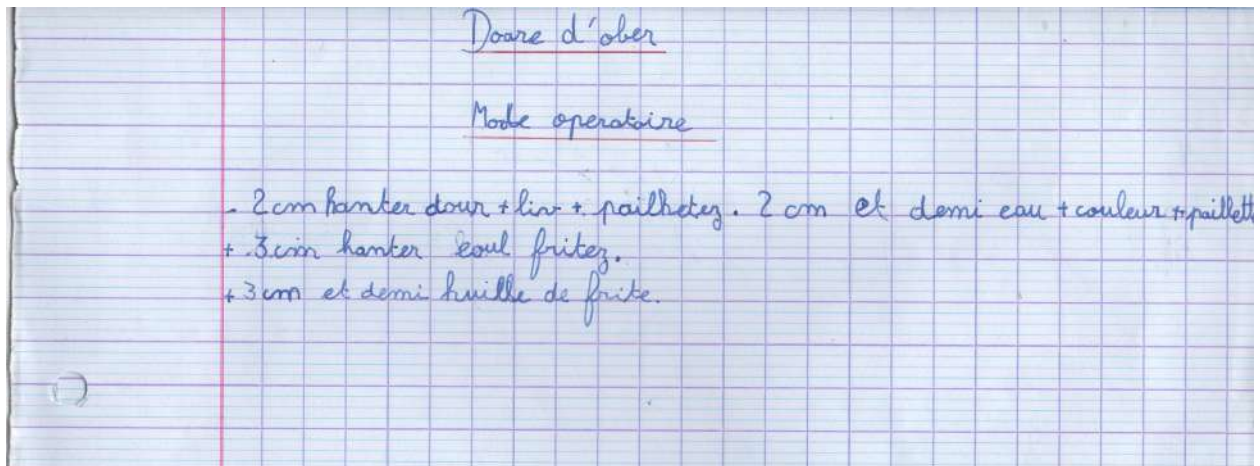 Doare d'ober
Mode operatoire
- 2 cm hanter dour + liv + pailhetez. 2 cm et demi eau + couleur + paillett
+ 3 cm hanter eoul fritez.
+ 3 cm et demi huille de frite.